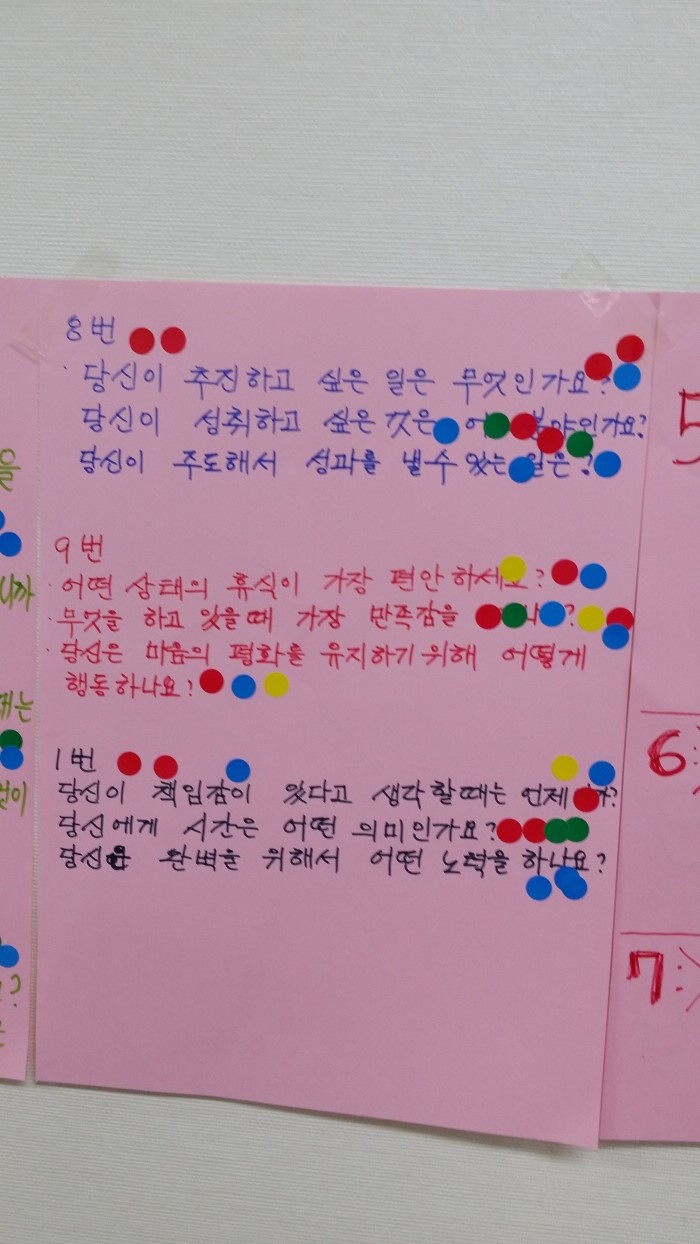 8번
· 당신이 추진하고 싶은 일은 무엇인가요?
당신이 성취하고 싶은 것은 분야인가요?
당신이 주도해서 성과를 낼수 있는 일은?
9번
· 어떤 상태의 휴식이 가장 편안하세요?
· 무엇을 하고 있을때 가장 만족감을 ?
· 당신은 마음의 평화를 유지하기위해 어떻게
행동하나요?
1번
당신이 책임감이 있다고 생각할때는 언제
당신에게 시간은 어떤 의미인가요?
당신은 완벽을 위해서 어떤 노력을 하나요?
을
니까
때는
없이
?
5
6:
7: